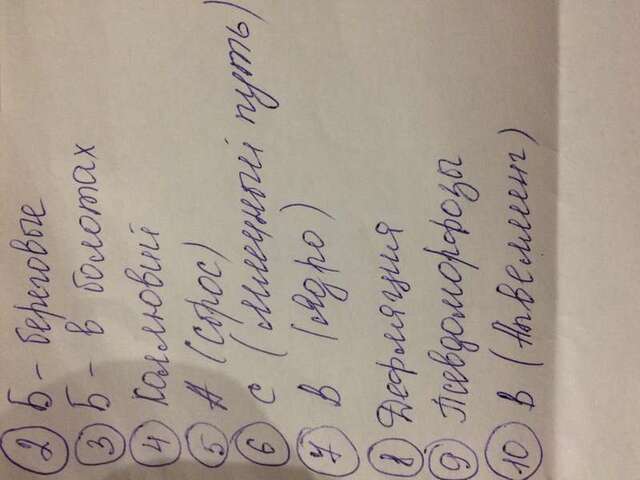 2 Б - береговые
3 Б - в болотах
4 Коллювий
5 А (сброс)
6 С (млечный путь)
7 В (ядро)
8 Дефляция
9 Псевдоморфозы
10 В (Апвеллинг)